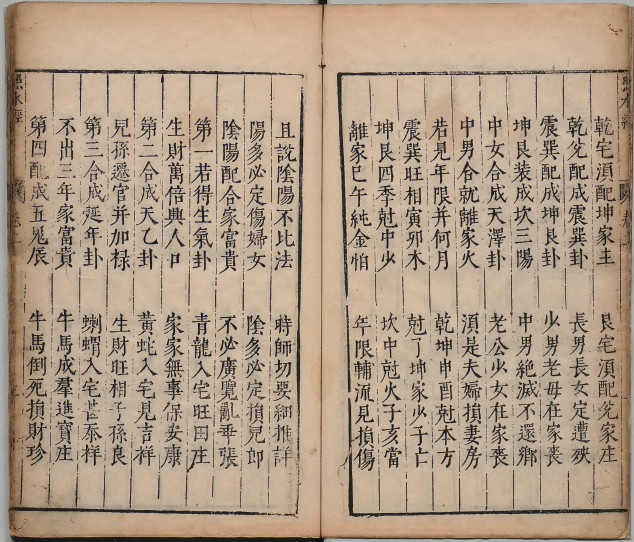 照水經
乾宅湏配坤家主 艮宅湏配兊家庄
乾兊配成震巽卦 長男長女定遭殃
震巽配成坤艮卦 少男老母在家喪
坤艮装成坎三陽 中男絶滅不還鄉
中女合成天澤卦 老公少女在家喪
中男合就離家火 湏是夫婦損妻房
若見年限并何月 乾坤申酉尅本方
震巽旺相寅卯木 尅了坤家少子亡
坤艮四季尅中少 坎中尅火子亥當
離家巳午純金怕 年限輔流見損傷
且說陰陽不比法 時師切要細推詳
陽多必定傷婦女 陰多必定損兒郎
陰陽配合家富貴 不必廣覽亂乖張
第一若得生氣卦 青龍入宅旺田庄
生財萬倍興人口 家家無事保安康
第二合成天乙卦 黃蛇入宅見吉祥
兒孫遷官并加禄 生財旺相子孫良
第三合成延年卦 蝟入宅甚祥
不出三年家富貴 牛馬成羣進寶庄
第四配成五鬼辰 牛馬倒死損財珍
照水經